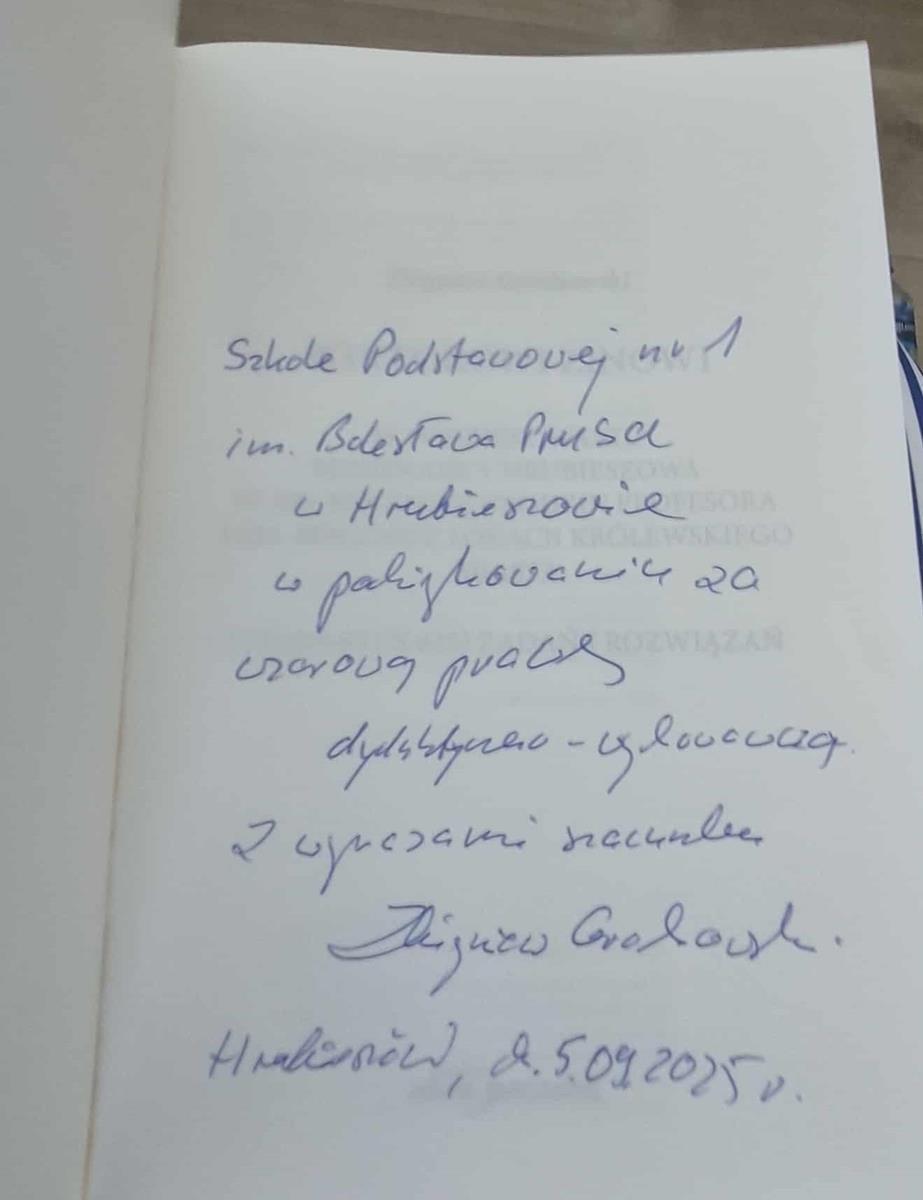 Szkole Podstawowej nr 1
im. Bolesława Prusa
w Hrubieszowie
w podziękowaniu za
wzorową pracę
dydaktyczno-wychowawczą.
Z wyrazami szacunku
Zbigniew Grabowski.
Hrubieszów, d. 5.09.2025 r.